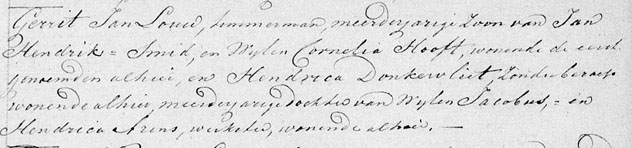 Gerrit Jan Louw, timmerman, meerderjarige Zoon van Jan
Hendrik = Smid, en Wylen Cornelia Hooft, wonende de eerst
genoemden alhier, en Hendrica Donkervliet, Zonder beroep
wonende alhier, meerderjarige dochter van Wylen Jacobus, = en
Hendrica Arens, werkster, wonende alhier. —